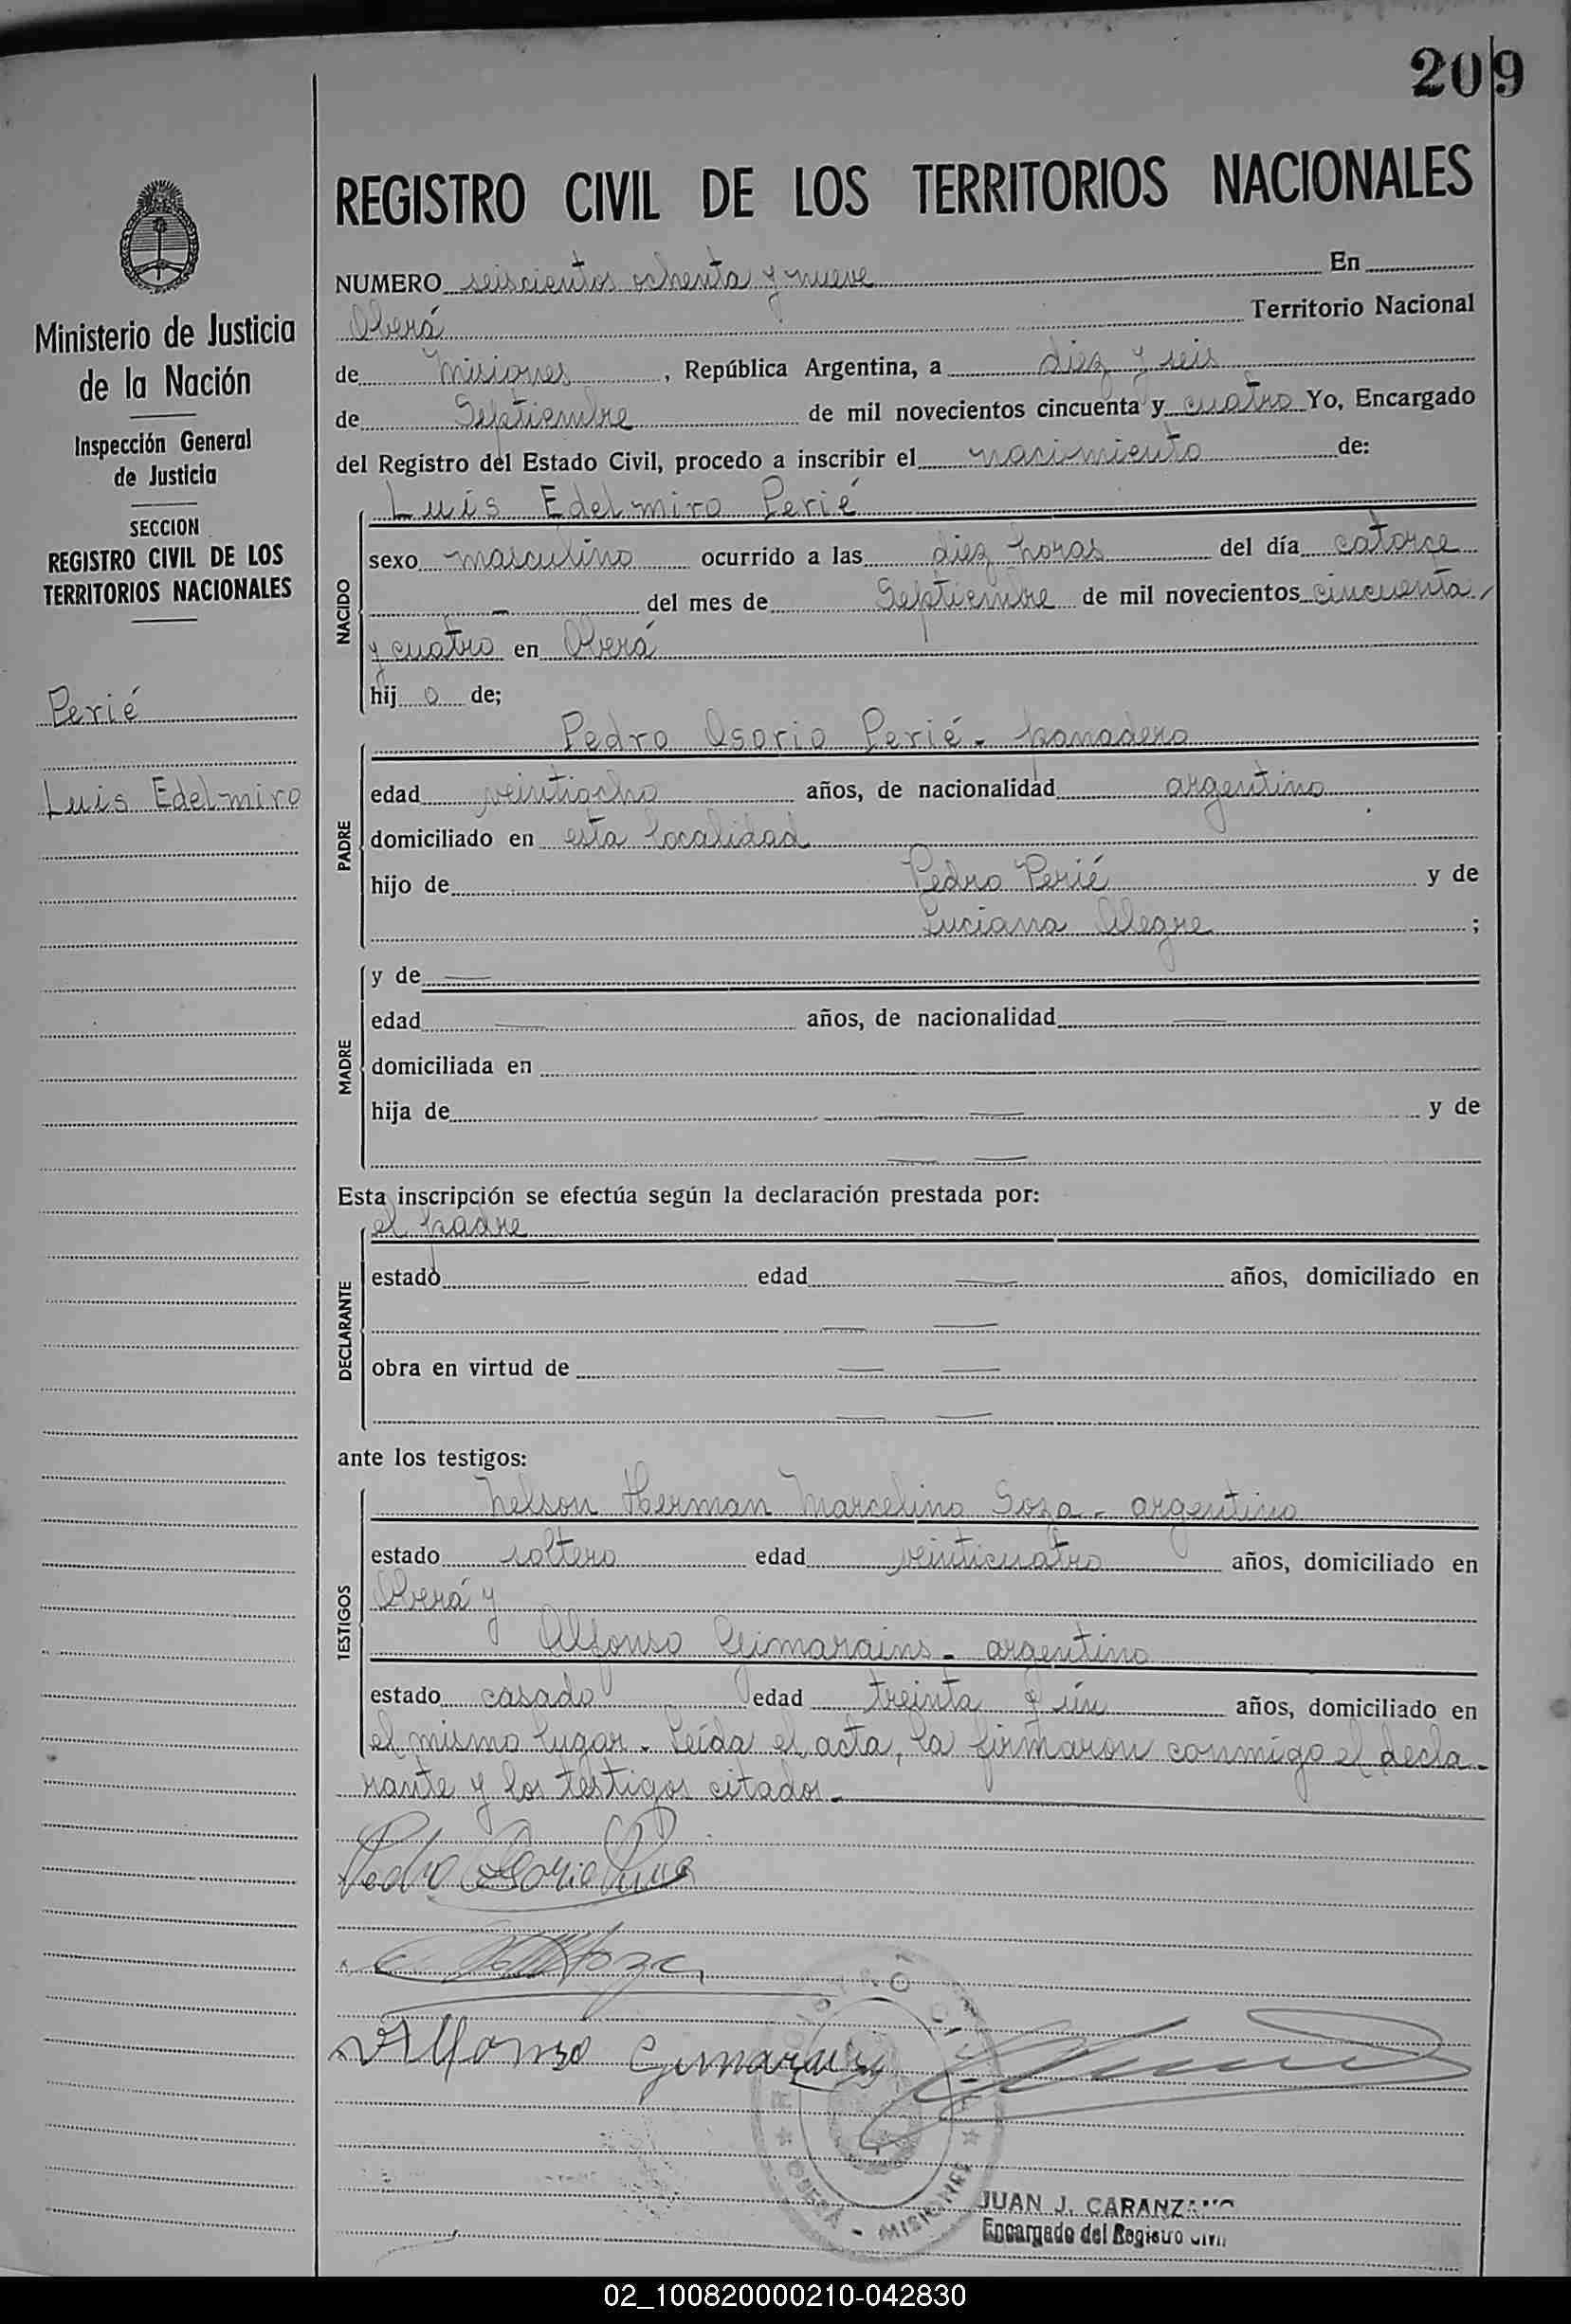 209
REGISTRO CIVIL DE LOS TERRITORIOS NACIONALES
Ministerio de Justicia
de la Nación
Inspección General
de Justicia
SECCION
REGISTRO CIVIL DE LOS
TERRITORIOS NACIONALES
Perié
Luis Edelmiro
NUMERO seiscientos ochenta y nueve En
Oberá Territorio Nacional
de Misiones, República Argentina, a diez y seis
de Septiembre de mil novecientos cincuenta y cuatro Yo, Encargado
del Registro del Estado Civil, procedo a inscribir el nacimiento de:
NACIDO
Luis Edelmiro Perié
sexo masculino ocurrido a las diez horas del día catorce
— del mes de Septiembre de mil novecientos cincuenta
y cuatro en Oberá
hij o de;
PADRE
Pedro Osorio Perié - panadero
edad veintiocho años, de nacionalidad argentino
domiciliado en esta localidad
hijo de Pedro Perié y de
Luciana Alegre ;
MADRE
y de —
edad — años, de nacionalidad —
domiciliada en
hija de — — y de
— —
Esta inscripción se efectúa según la declaración prestada por:
DECLARANTE
el padre
estado — edad — años, domiciliado en
— —
obra en virtud de — —
— —
ante los testigos:
TESTIGOS
Nelson Herman Marcelino Soza - argentino
estado soltero edad veinticuatro años, domiciliado en
Oberá y
Alfonso Gimarains - argentino
estado casado edad treinta y ún años, domiciliado en
el mismo lugar - Leída el acta, la firmaron conmigo el decla-
rante y los testigos citados.-
Pedro Osorio Perié
Soza
Alfonso Gimarains
REGISTRO CIVIL
OBERÁ - MISIONES
JUAN J. CARANZANO
Encargado del Registro Civil
02_100820000210-042830